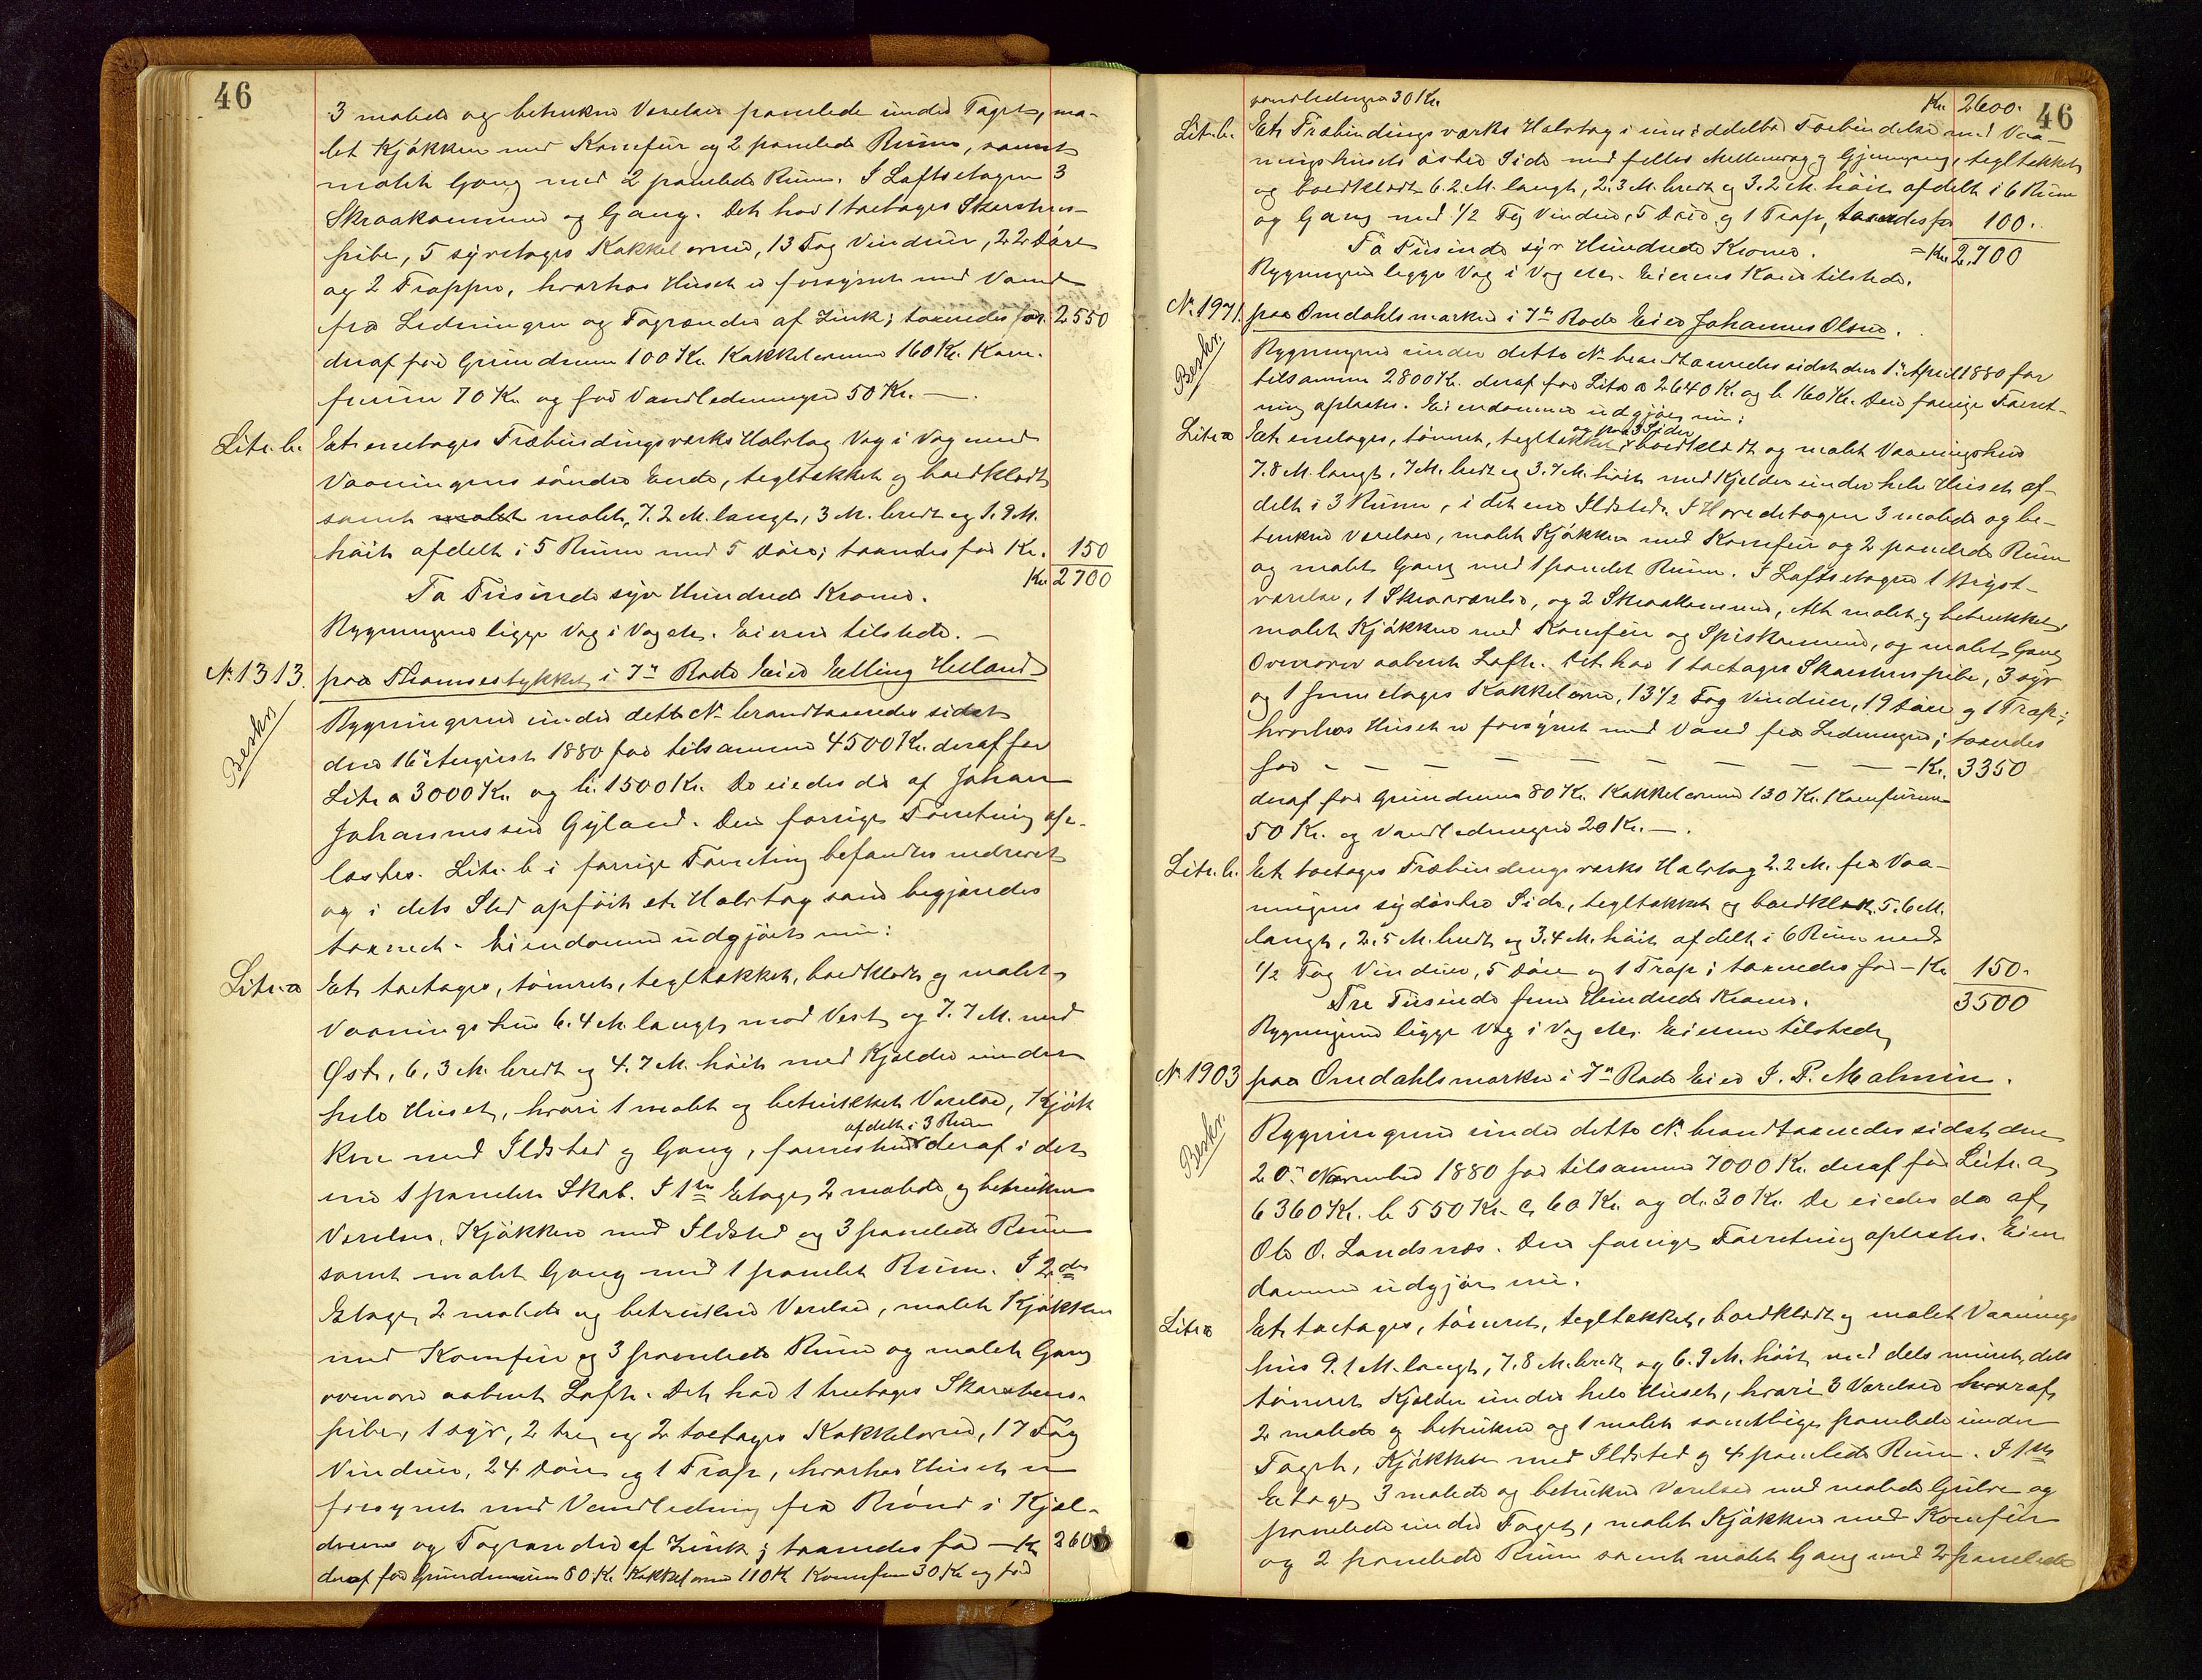 46
3 malede og betrukne Værelser panelede under Taget, ma-
let Kjøkken med Komfur og 2 panelede Rum, samt
malet Gang med 2 panelede Rum. I Loftsetagen 3
Skraakammere og Gang. Det har 1 toetages Skorstens-
pibe, 5 syvetages Kakkelovne, 13 Fag Vinduer, 22 Døre
og 2 Trapper, hvorhos Huset er forsynet med Vand
fra Ledningen og Tagrender af Zink; taxeredes for 2550
deraf for Grundmuren 100 Kr. Kakkelovnene 160 Kr. Kom-
furene 70 Kr. og for Vandledningen 50 Kr. —.
Litr. b. Et enetages Træbindingsværks Halvtag Væg i Væg med
Vaaningens søndre Ende, tegltækket og bordklædt
samt malet malet, 7.2 M. langt, 3 M. bredt og 1.9 M.
høit afdelt i 5 Rum med 5 Døre; taxeredes for Kr. 150
Kr. 2700
To Tusinde syv Hundrede Kroner.
Bygningerne ligge Væg i Væg etc. Eieren tilstede. —
No 1313. paa Thomasstykket i 7de Rode Eier Elling Helland
Beskr.
Bygningerne under dette No brandtaxeredes sidst
den 16de August 1880 for tilsammen 4500 Kr. deraf for
Litr. a 3000 Kr. og b. 1500 Kr. De eiedes da af Johan
Johannessen Gyland. Den forrige Forretning op-
læstes. Litr. b i forrige Forretning befandtes nedrevet
og i dets Sted opført et Halvtag som begjæredes
taxeret. Eiendommen udgjør nu:
Litr. a Et toetages, tømret, tegltækket, bordklædt og malet
Vaaningshus 6.4 M. langt mod Vest og 7.7 M. mod
Øst, 6.3 M. bredt og 4.7 M. høit med Kjelder under
hele Huset, hvori 1 malet og betrukket Værelse, Kjøk
afdelt i 3 Rum
ken med Ildsted og Gang, forresten deraf i det
ene 1 panelet Skab. I 1ste Etage 2 malede og betrukne
Værelser, Kjøkken med Ildsted og 3 panelede Rum
samt malet Gang med 1 panelet Rum. I 2den
Etage 2 malede og betrukne Værelser, malet Kjøkken
med Komfur og 3 panelede Rum og malet Gang
ovenover aabent Loft. Det har 1 treetages Skorstens-
pibe, 1 syv, 2 tre og 2 toetages Kakkelovne, 17 Fag
Vinduer, 24 Døre og 1 Trap, hvorhos Huset er
forsynet med Vandledning fra Brønd i Kjel-
deren og Tagrender af Zink; taxeredes for — Kr. 2600
deraf for Grundmuren 80 Kr. Kakkelovne 110 Kr. Komfur 30 Kr. og for
46
vandledningen 30 Kr. Kr. 2600.
Litr. b. Et Træbindingsværks Halvtag i umiddelbar Forbindelse med Vaa-
ningshusets østre Side med felles Mellemvæg og Gjennemgang, tegltækket
og bordklædt 6.2 M. langt, 2.3 M. bredt og 3.2 M. høit afdelt i 6 Rum
og Gang med 1/2 Fag Vindue, 5 Døre og 1 Trap, taxeredes for 100.
To Tusinde syv Hundrede Kroner. = Kr. 2,700
Bygningerne ligge Væg i Væg etc. Eierens Kone tilstede.
No 1971. paa Omdahlsmarken i 7de Rode Eier Johannes Olsen.
Beskr.
Bygningerne under dette No brandtaxeredes sidst den 1ste April 1880 for
tilsammen 2800 Kr. deraf for Litr. a 2640 Kr. og b. 160 Kr. Den forrige Forret-
ning oplæstes. Eiendommen udgjør nu:
og paa 3 Sider
Litr. a Et enetages, tømret, tegltækket bordklædt og malet Vaaningshus
7.8 M. langt, 7 M. bredt og 3.7 M. høit med Kjelder under hele Huset af-
delt i 3 Rum, i det ene Ildsted. I Hovedetagen 3 malede og be-
trukne Værelser, malet Kjøkken med Komfur og 2 panelede Rum
og malet Gang med 1 panelet Rum. I Loftsetagen 1 Bryst-
værelse, 1 Skraaværelse, og 2 Skraakammere, Alt malet og betrukket,
malet Kjøkken med Komfur og Spiskammer, og malet Gang
Ovenover aabent Loft. Det har 1 toetages Skorstenspibe, 3 syv
og 1 femetages Kakkelovne, 13 1/2 Fag Vinduer, 19 Døre og 1 Trap;
hvorhos Huset er forsynet med Vand fra Ledningen; taxeredes
for - — — — — — — — — — Kr. 3350
deraf for Grundmuren 80 Kr. Kakkelovnene 130 Kr. Komfurene
50 Kr. og Vandledningen 20 Kr. —.
Litr. b. Et toetages Træbindingsværks Halvtag 2.2 M. fra Vaa-
ningens sydøstre Side, tegltækket og bordklædt, 5.6 M.
langt, 2.5 M. bredt og 3.4 M. høit afdelt i 6 Rum med
1/2 Fag Vinduer, 5 Døre og 1 Trap; taxeredes for — Kr. 150.
Tre Tusinde fem Hundrede Kroner. 3500
Bygningerne ligge Væg i Væg etc. Eieren tilstede
No 1903 paa Omdahlsmarken i 7de Rode Eier I. P. Malmin.
Beskr.
Bygningerne under dette No brandtaxeredes sidst den
20de November 1880 for tilsammen 7000 Kr. deraf for Litr. a
6360 Kr. b 550 Kr. c 60 Kr. og d. 30 Kr. De eiedes da af
Ole O. Landsnæs. Den forrige Forretning oplæstes. Eien
dommen udgjør nu.
Litr. a Et toetages, tømret, tegltækket, bordklædt og malet Vaanings
hus 9.1 M. langt, 7.8 M. bredt og 6.9 M. høit med dels muret, dels
tømret Kjelder under hele Huset, hvori 3 Værelser hvoraf
2 malede og betrukne og 1 malet samtlige panelede under
Taget, Kjøkken med Ildsted og 4 panelede Rum. I 1ste
Etage 3 malede og betrukne Værelser med malede Gulve og
panelede under Taget, malet Kjøkken med Komfur
og 2 panelede Rum samt malet Gang med 2 panelede